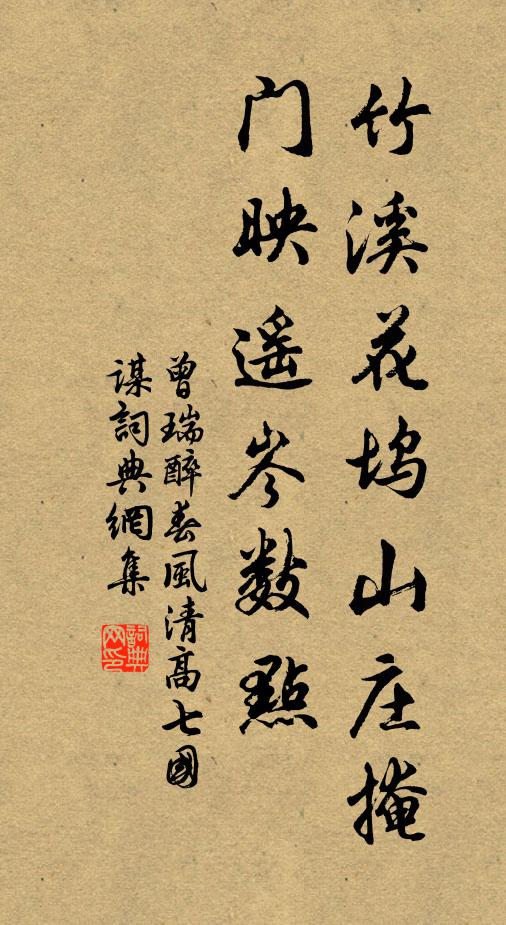 竹溪花坞山庄掩
门映遥岑数點
曾瑞醉春風清高七國
謀詞典網集
詞典
网印